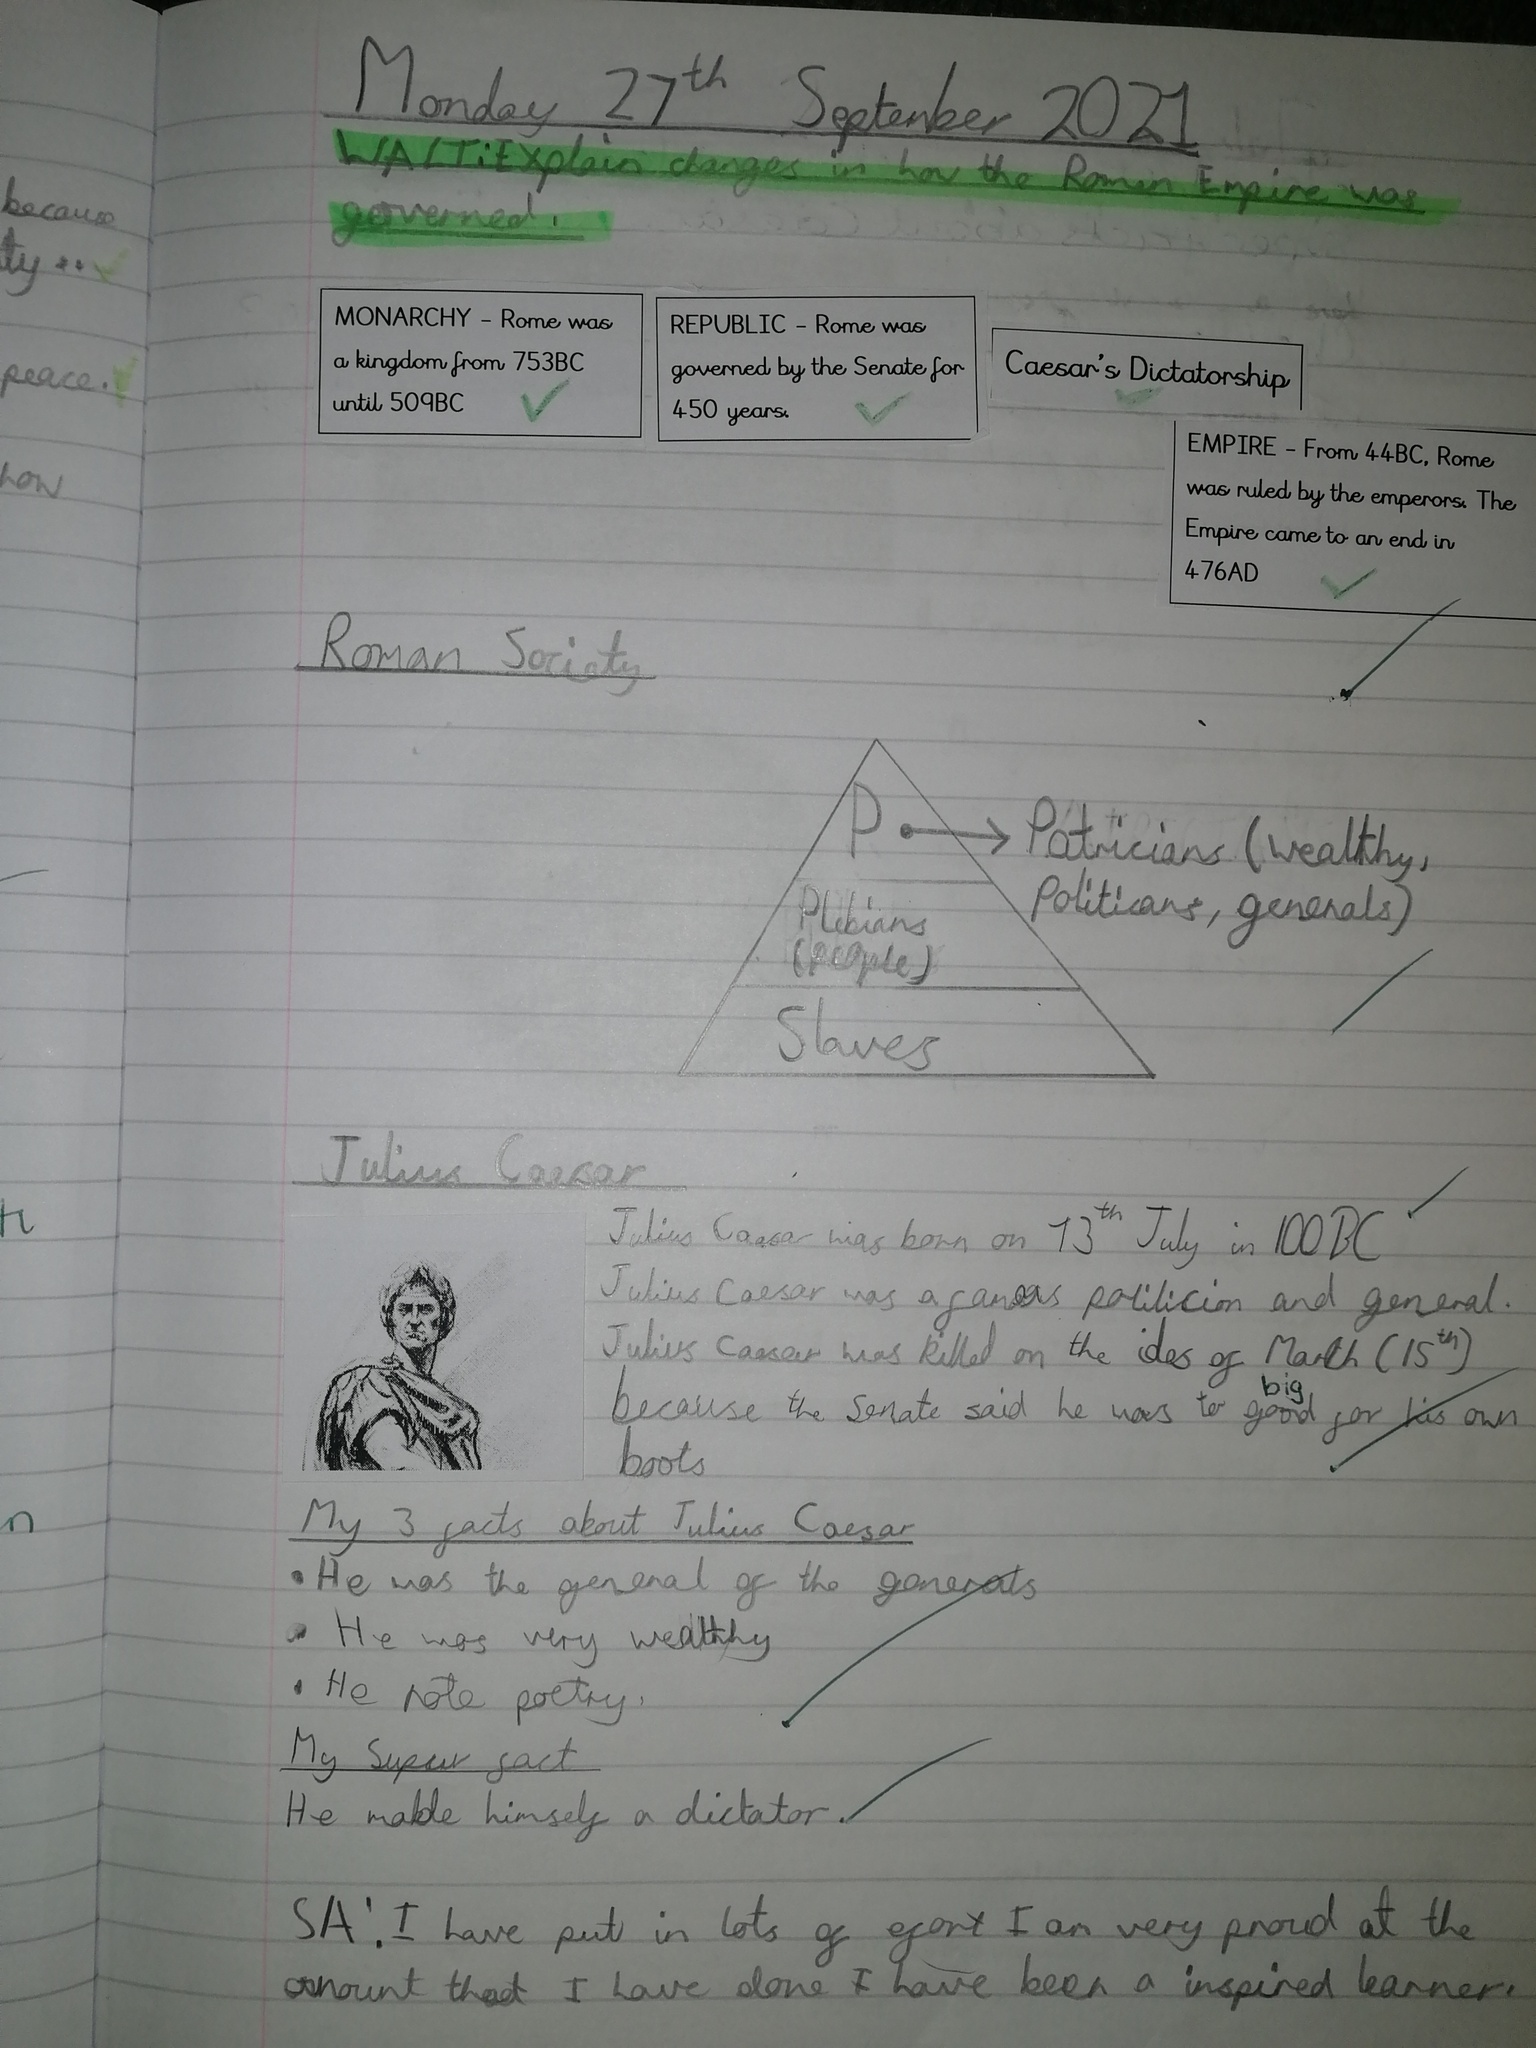 Monday 27th September 2021
WALT: Explain changes in how the Roman Empire was
governed.
because
ty ..
peace.
how
MONARCHY - Rome was
a kingdom from 753BC
until 509BC
REPUBLIC - Rome was
governed by the Senate for
450 years.
Caesar's Dictatorship
EMPIRE - From 44BC, Rome
was ruled by the emperors. The
Empire came to an end in
476AD
Roman Sociaty
P
Patricians (wealthy,
Politicans, generals)
Plebians
(people)
Slaves
Julius Caesar
Julius Caesar was born on 13th July in 100BC
Julius Caesar was a famous politicion and general.
Julius Caesar was killed on the ides of March (15th)
big
because the Senate said he was to good for his own
boots
n
My 3 facts about Julius Caesar
• He was the general of the generals
• He was very wealthy
• He rote poetry.
My Super fact
He made himself a dictator.
SA: I have put in lots of efort I am very proud at the
amount that I have done I have been a inspired learner.